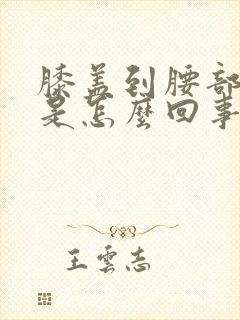 膝盖到腰部
是怎麼回事
王雲志